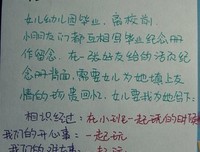 女儿幼儿园毕业,离校前
小朋友们都互相写毕业纪念册
作留念。在一张好友给的活页纪
念册背面,需要女儿为她填上友
情的珍贵回忆。女儿要我为她写下:
相识经过:在小班一起玩的时候
我们的开心事:一起玩